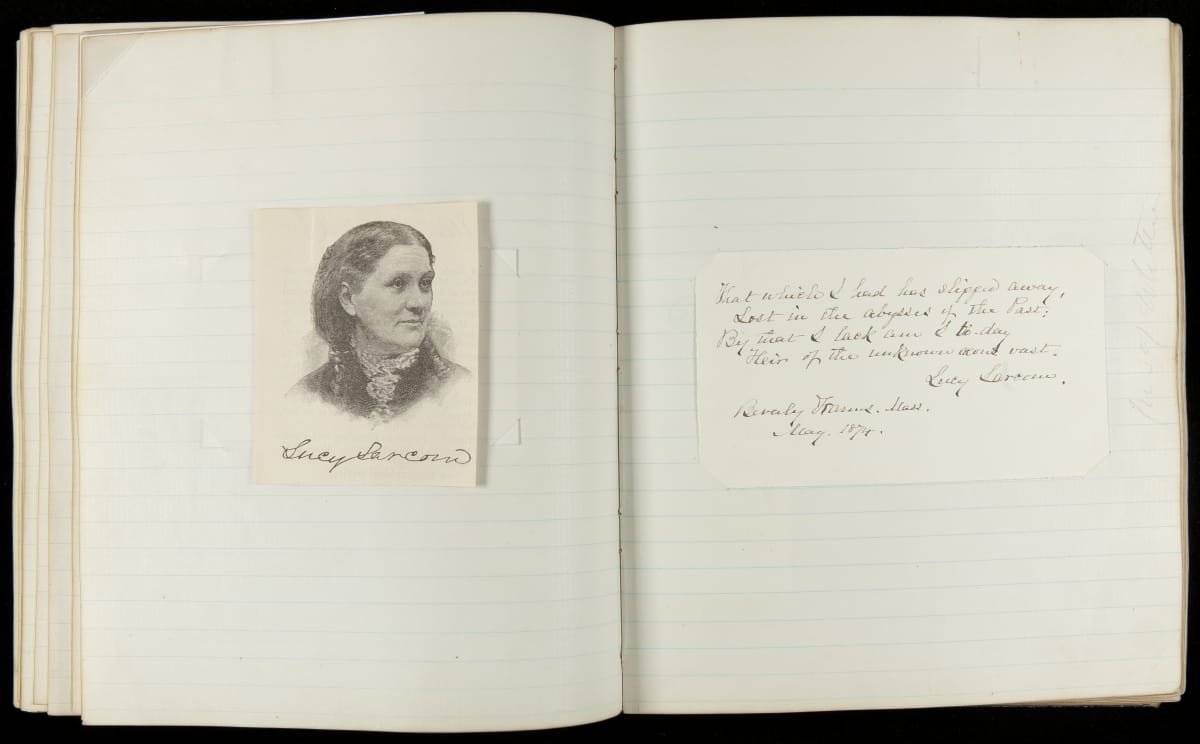 Lucy Larcom
That which I had has slipped away,
Lost in the abysses of the Past;
By that I lack am I to-day
Heir of the unknown æons vast.
Lucy Larcom.
Beverly Farms. Mass.
May. 1874.